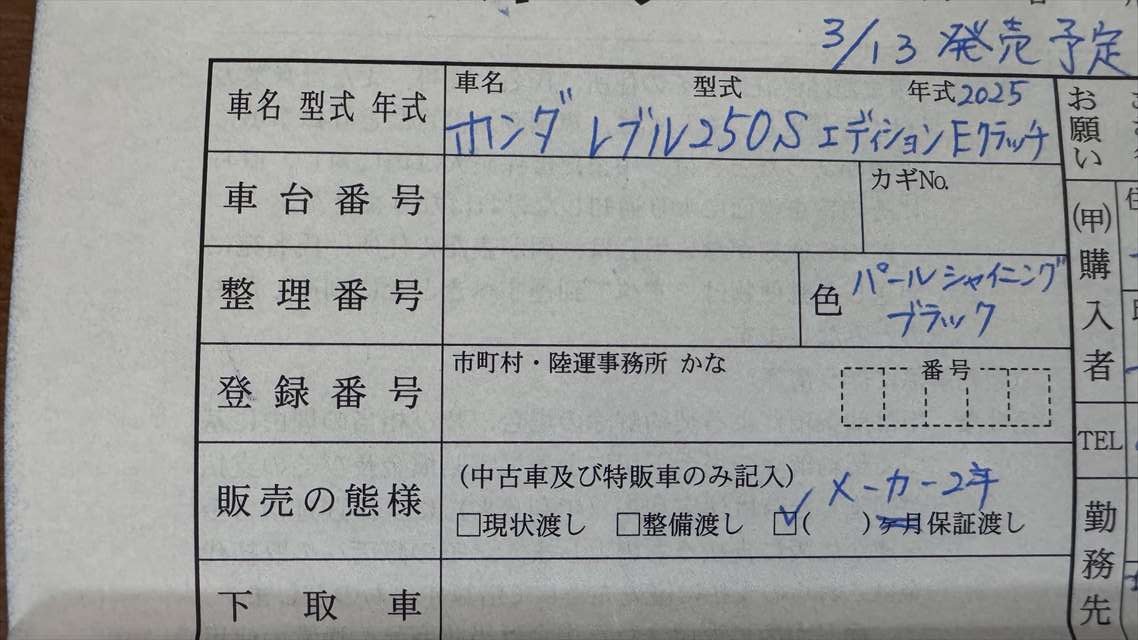 3/13 発売予定
車名 型式 年式
車名 型式 年式 2025
ホンダ レブル250S エディション Eクラッチ
車台番号
カギNo.
整理番号
色 パールシャイニング
ブラック
登録番号
市町村・陸運事務所 かな 番号
販売の態様
(中古車及び特販車のみ記入)
メーカー2年
□現状渡し □整備渡し ☑( )ヶ月保証渡し
下取車
お願い
(甲)購入者
TEL
勤務先